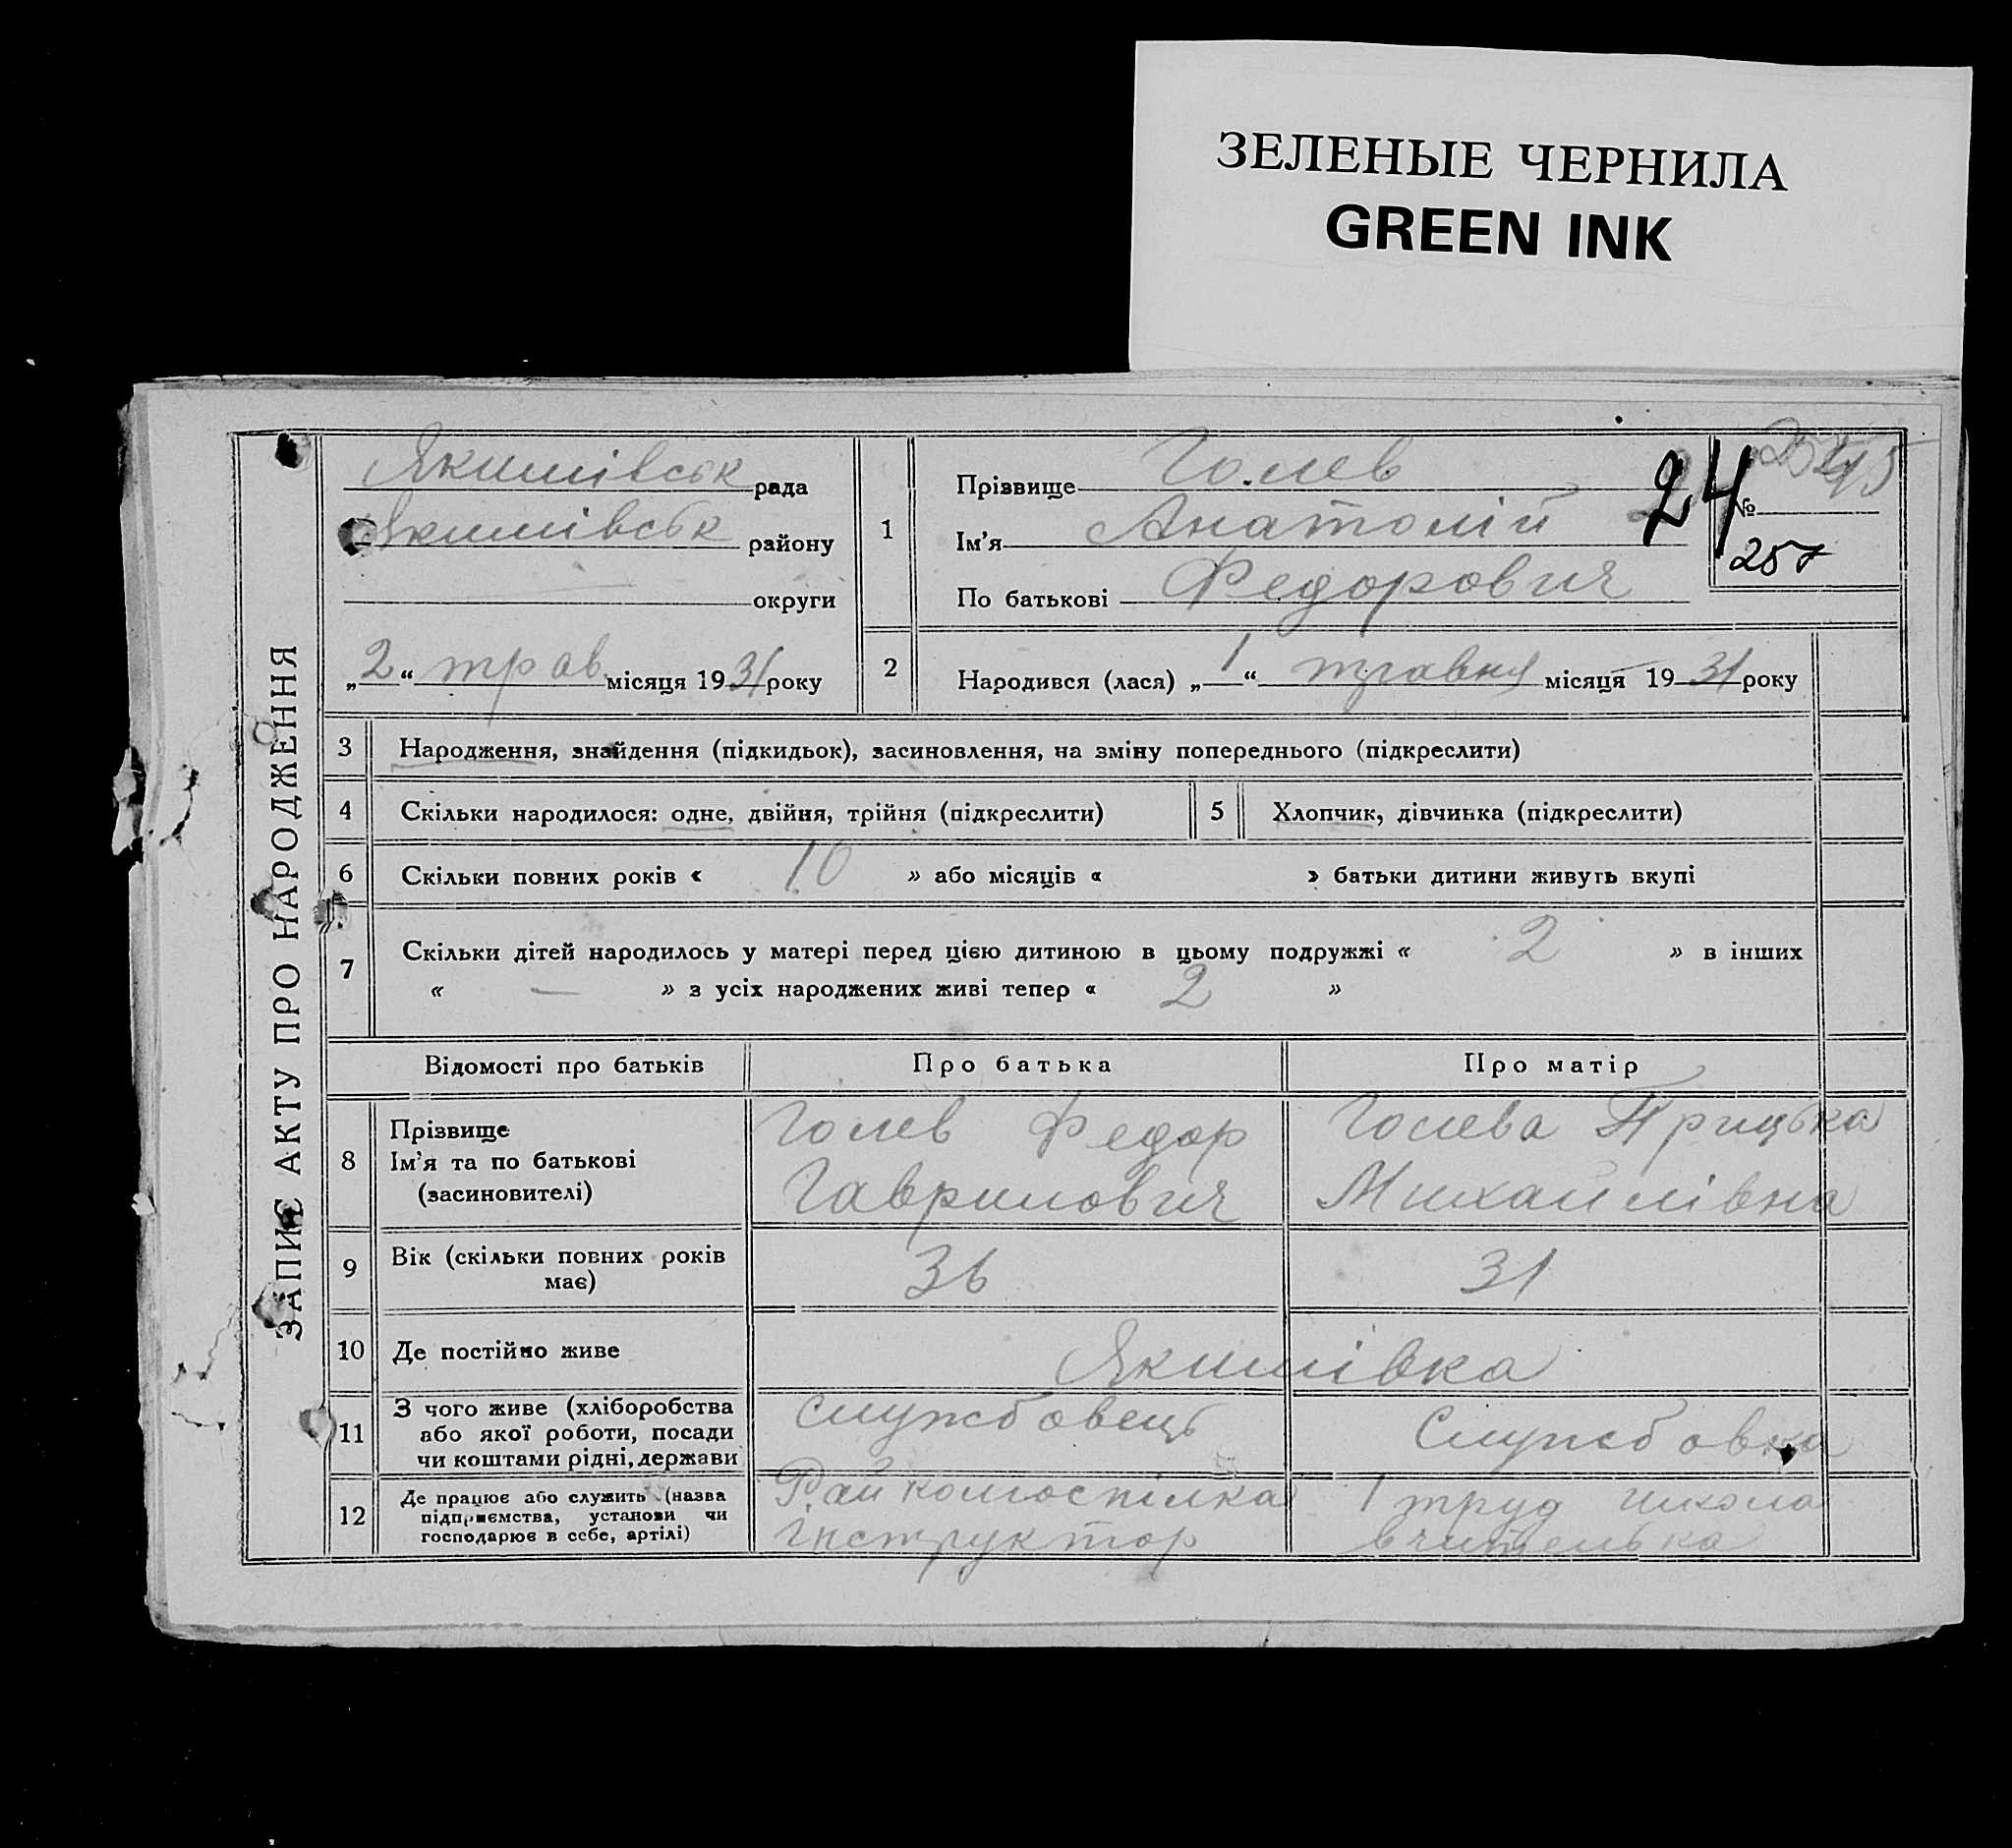 ЗЕЛЕНЫЕ ЧЕРНИЛА
GREEN INK
ЗАПИС АКТУ ПРО НАРОДЖЕННЯ
Якимівськ рада
Якимівськ району
округи
„2“ трав. місяця 1931 року
1
Прізвище Голев
Ім'я Анатолій
По батькові Федорович
24
№
257
2
Народився (лася) „1“ травня місяця 1931 року
3 Народження, знайдення (підкидьок), засиновлення, на зміну попереднього (підкреслити)
4 Скільки народилося: одне, двійня, трійня (підкреслити)
5 Хлопчик, дівчинка (підкреслити)
6 Скільки повних років « 10 » або місяців « » батьки дитини живуть вкупі
7 Скільки дітей народилось у матері перед цією дитиною в цьому подружжі « 2 » в інших
« — » з усіх народжених живі тепер « 2 »
Відомості про батьків Про батька Про матір
8 Прізвище
Ім'я та по батькові
(засиновителі)
Голев Федор
Гаврилович
Голева
Михайлівна
9 Вік (скільки повних років
має)
36
31
10 Де постійно живе
Якимівка
11 З чого живе (хліборобства
або якої роботи, посади
чи коштами рідні, держави
Службовець
Службовка
12 Де працює або служить (назва
підприємства, установи чи
господарює в себе, артілі)
Райколгоспілка
інструктор
1 труд школа
вчителька